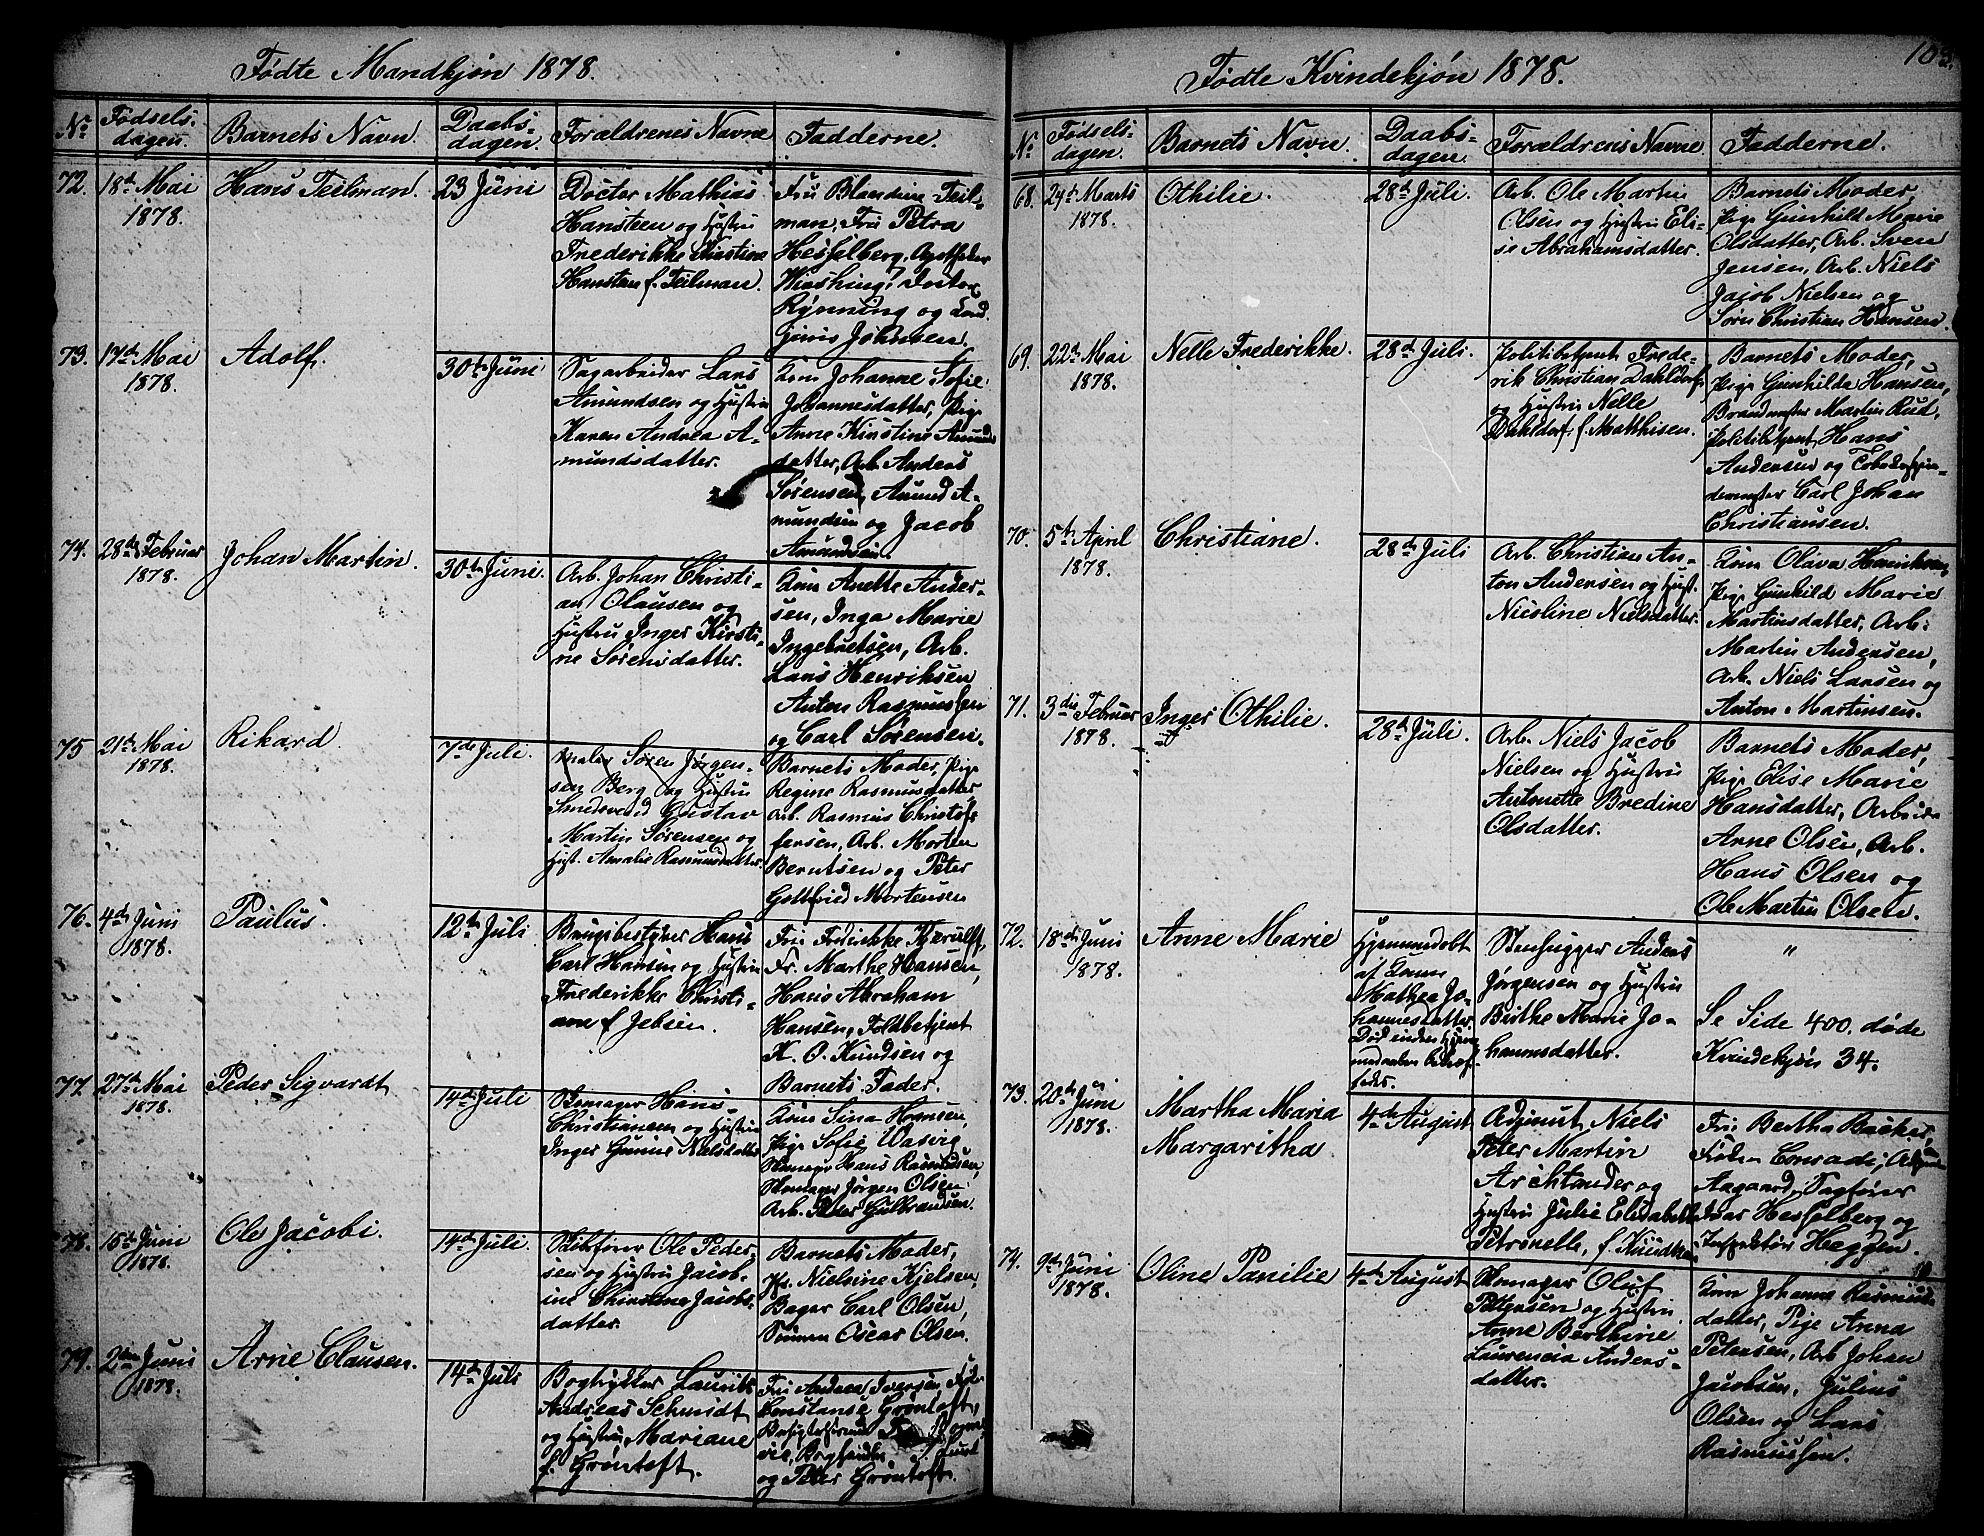 Fødte Mandkjøn 1878.
No
Fødsels-
dagen.
Barnets Navn.
Daabs-
dagen.
Forældrenes Navne
Fadderne.
72.
18de Mai
1878.
Hans Teilman
23 Juni
Doctor Mathias
Hansteen og Hustru
Frederikke Kirstine
Hansteen f. Teilman.
Fru Blandine Teil-
man, Fru Petra
Hesselberg, Apotheker
Doctor
Rynning og
Johnsen.
73.
17de Mai
1878.
Adolf.
30te Juni
Sagarbeider Lars
Amundsen og Hustru
Karen Andrea A-
mundsdatter.
Kone Johanne Sofie
Johannesdatter, Pige
Anne Kirstine Amunds
datter, Arb. Anders
Sørensen, Amund A-
mundsen og Jacob
Amundsen.
74.
28de Februar
1878.
Johan Martin.
30te Juni.
Arb. Johan Christi-
an Olausen og
Hustru Inger Kirsti-
ne Sørensdatter.
Kone Anette Ander-
sen, Inga Marie
Ingebretsen, Arb.
Lars Henriksen
Anton Rasmussen
og Carl Sørensen.
75
21de Mai
1878.
Rikard
7de Juli.
Maler Søren Jørgen-
sen Berg og Hustru
Smedsvend Gustav
Martin Sørensen og
Hust. Amalie Rasmusdatter.
Barnets Moder, Pige
Regine Rasmusdatter
Arb. Rasmus Christof-
fersen, Arb. Morten
Berntsen og Peter
Gottfried Mortensen
76.
4de Juni
1878.
Paulus.
12te Juli
Brugsbestyrer Hans
Carl Hansen og Hustru
Frederikke Christi-
ane f. Jebsen.
Fru Fredrikke Kjerulff,
Fr. Marthe Hansen,
Hans Abraham
Hansen, Toldbetjent
K. O. Knudsen og
Barnets Fader.
77.
27de Mai
1878.
Peder Sigvardt
14de Juli
Skomager Hans
Christiansen og Hustru
Inger Gunine Nielsdatter
Kone Sina Hansen,
Pige Sofie Wasvig
Skomager Hans Rasmussen,
Skomager Jørgen Olsen
Arb. Peder Gulbrandsen.
78.
15de Juni
1878.
Ole Jacobi.
14de Juli.
Skibsfører Ole Peder-
sen og Hustru Jacob-
ine Christine Jacobs-
datter.
Barnets Moder,
Nielsine Kjelsen,
Bager Carl Olsen,
Sømand Oscar Olsen.
79.
2den Juni
1878.
Arne Clausen.
14de Juli
Bogtrykker Laurits
Andreas Schmidt
og Hustru Mariane
f. Grøntoft.
Fru Andrea Iversen,
Constanse Grøntoft,
og Peter Grøntoft.
103.
Fødte Kvindekjøn 1878.
No
Fødsels-
dagen.
Barnets Navn.
Daabs-
dagen.
Forældrenes Navne
Fadderne.
68.
24de Marts
1878.
Othilie.
28de Juli.
Arb. Ole Martin
Olsen og Hustru Eli-
se Abrahamsdatter.
Barnets Moder,
Pige Gunhild Marie
Olsdatter, Arb. Sven
Jensen, Arb. Niels
Jacob Nielsen og
Søren Christian Hansen.
69.
22de Mai
1878.
Nelle Frederikke.
28de Juli.
Politibetjent Frede-
rik Christian Dahldorf
og Hustru Nelle
Dahldorf f. Matthisen.
Barnets Moder,
Pige Gunhilda Hansen,
Brandmester Martin Rud,
Politibetjent Hans
Andersen og Tobakspin-
dermester Carl Johan
Christiansen.
70.
5te April
1878.
Christiane.
28de Juli
Arb. Christian An-
ton Andersen og Hust.
Nicoline Nielsdatter.
Kone Olava Henriksen,
Pige Gunhild Marie
Martinsdatter, Arb.
Martin Andersen,
Arb. Niels Larsen og
Anton Martinsen.
71.
3die Februar
1878.
Inger Othilie.
28de Juli.
Arb. Niels Jacob
Nielsen og Hustru
Antonette Bredine
Olsdatter.
Barnets Moder,
Pige Elise Marie
Hansdatter, Arbeider
Arne Olsen, Arb.
Hans Olsen og
Ole Martin Olsen.
72.
18de Juni
1878.
Anne Marie
Hjemmedøbt
af Konen
Mathea Jo-
hannesdatter.
Død inden Hjem-
medaaben bekræf-
tedes.
Stenhugger Anders
Jørgensen og Hustru
Birthe Marie Jo-
hannesdatter.
"
Se Side 400. døde
Kvindekjøn 34.
73.
20de Juni
1878.
Martha Maria
Margaritha
4de August
Adjunct Niels
Peter Martin
Archtander og
Hustru Julie Elisabeth
Petronelle, f. Knudtzen
Fru Bertha Backer,
Frøken Conradi, Adjunkt
Aagaard, Sagfører
Ivar Hesselberg og
Inspektør Heggen.
74.
9de Juni
1878.
Oline Panilie
4de August
Skomager Oluf
Pettersen og Hustru
Anne Berthine
Laurencia Anders-
datter.
Kone Johanne Rasmus-
datter, Pige Anna
Petersen, Arb. Johan
Jacobsen, Julius
Olsen og Lars
Rasmussen.